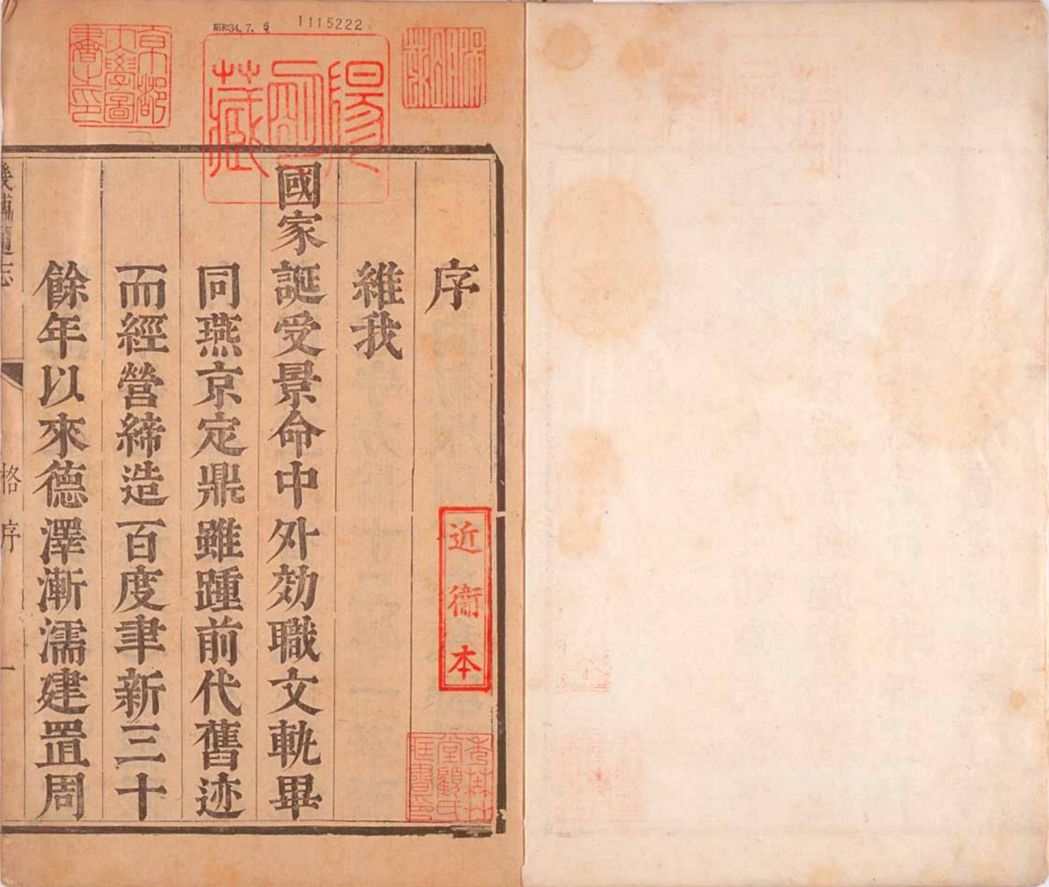 昭和34.7.6
1115222
京都
大學圖
書之印
陽明
藏
序
維我
國家誕受景命中外効職文軌畢
同燕京定鼎雖踵前代舊迹
而經營締造百度聿新三十
餘年以來德澤漸濡建置周
近衞本
堂顧氏
畿輔通志
格序
一